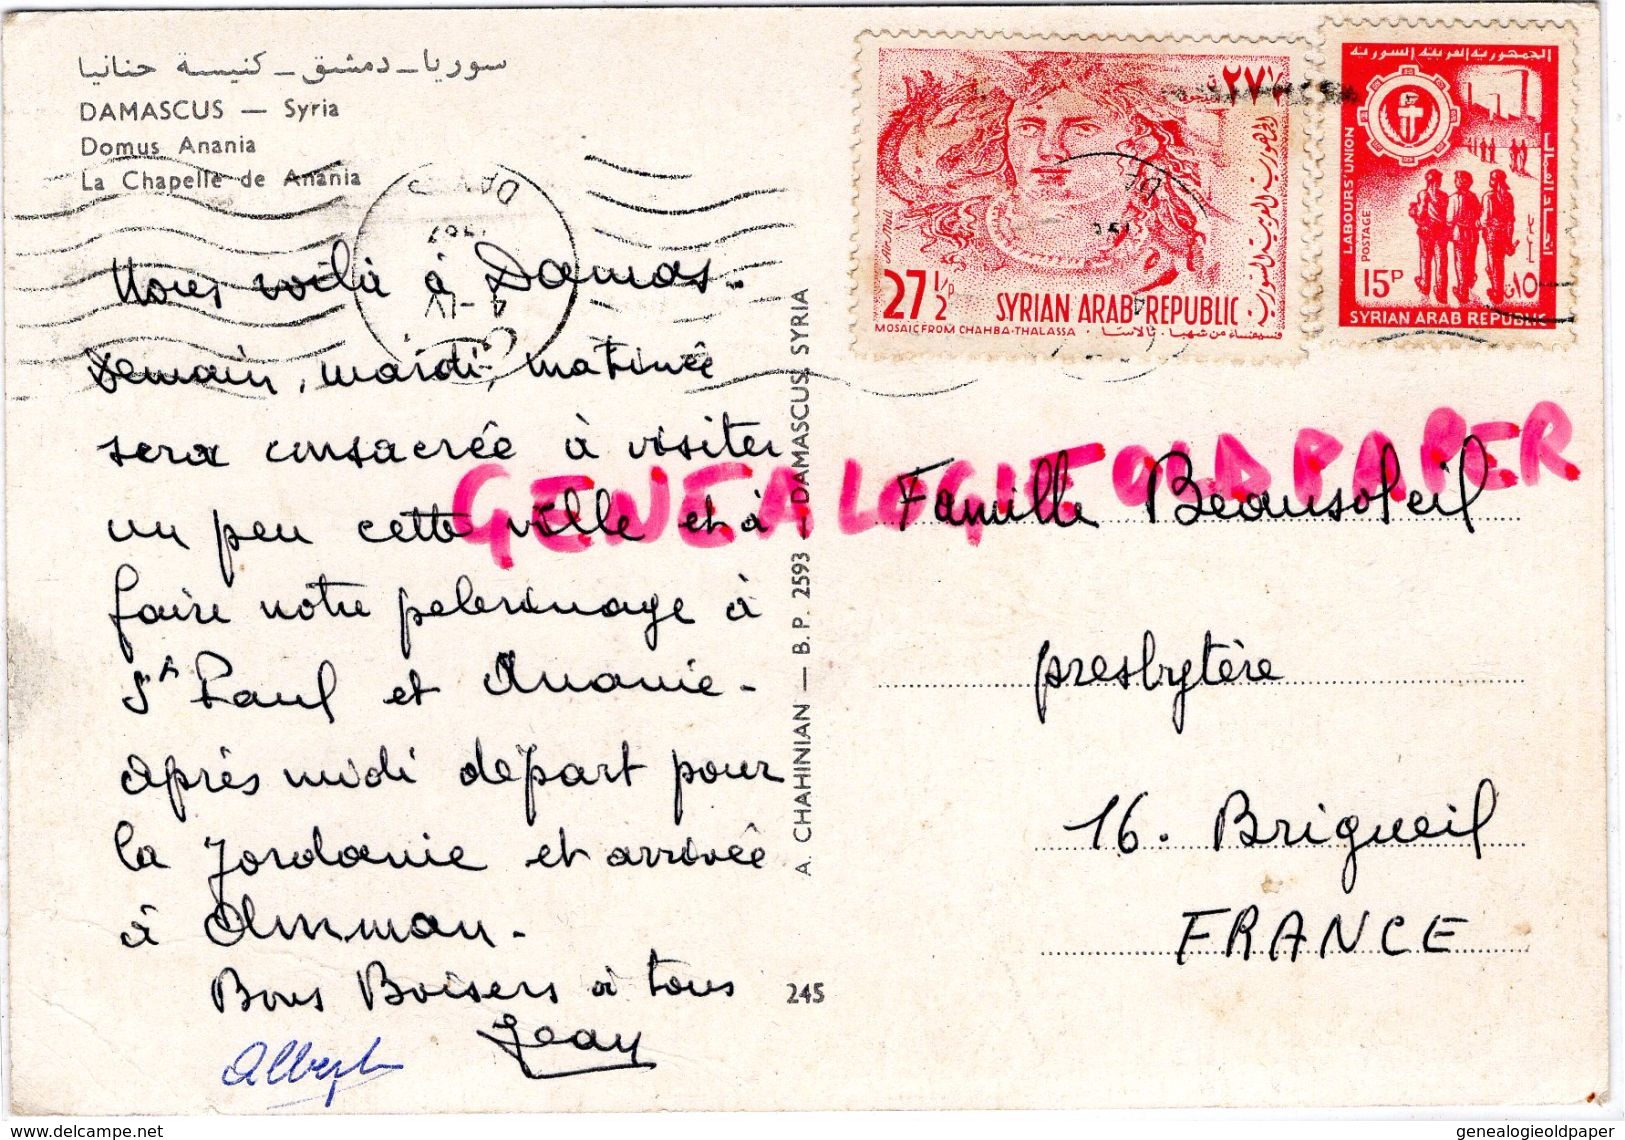 سوريا - دمشق - كنيسة حنانيا
DAMASCUS — Syria
Domus Anania
La Chapelle de Anania
Nous voilà à Damas.
Demain, mardi, matinée
sera consacrée à visiter
un peu cette ville et à
faire notre pelerinage à
St Paul et Ananie -
Après midi départ pour
la Jordanie et arrivée
à Amman -
Bons Baisers à tous
Jean
Albert
A. CHAHINIAN — B. P. 2593 — DAMASCUS, SYRIA
245
٢٧ ١/٢
الجمهورية العربية السورية
Air Mail
27 1/2 P
SYRIAN ARAB REPUBLIC
MOSAIC FROM CHAHBA-THALASSA
فسيفساء من شهبا - تالاسا
الجمهورية العربية السورية
LABOURS' UNION
POSTAGE
بريد
15P
١٥
SYRIAN ARAB REPUBLIC
GENEALOGIE OLD PAPER
Famille Beausoleil
presbytère
16. Brigueil
FRANCE
delcampe.net
genealogieoldpaper